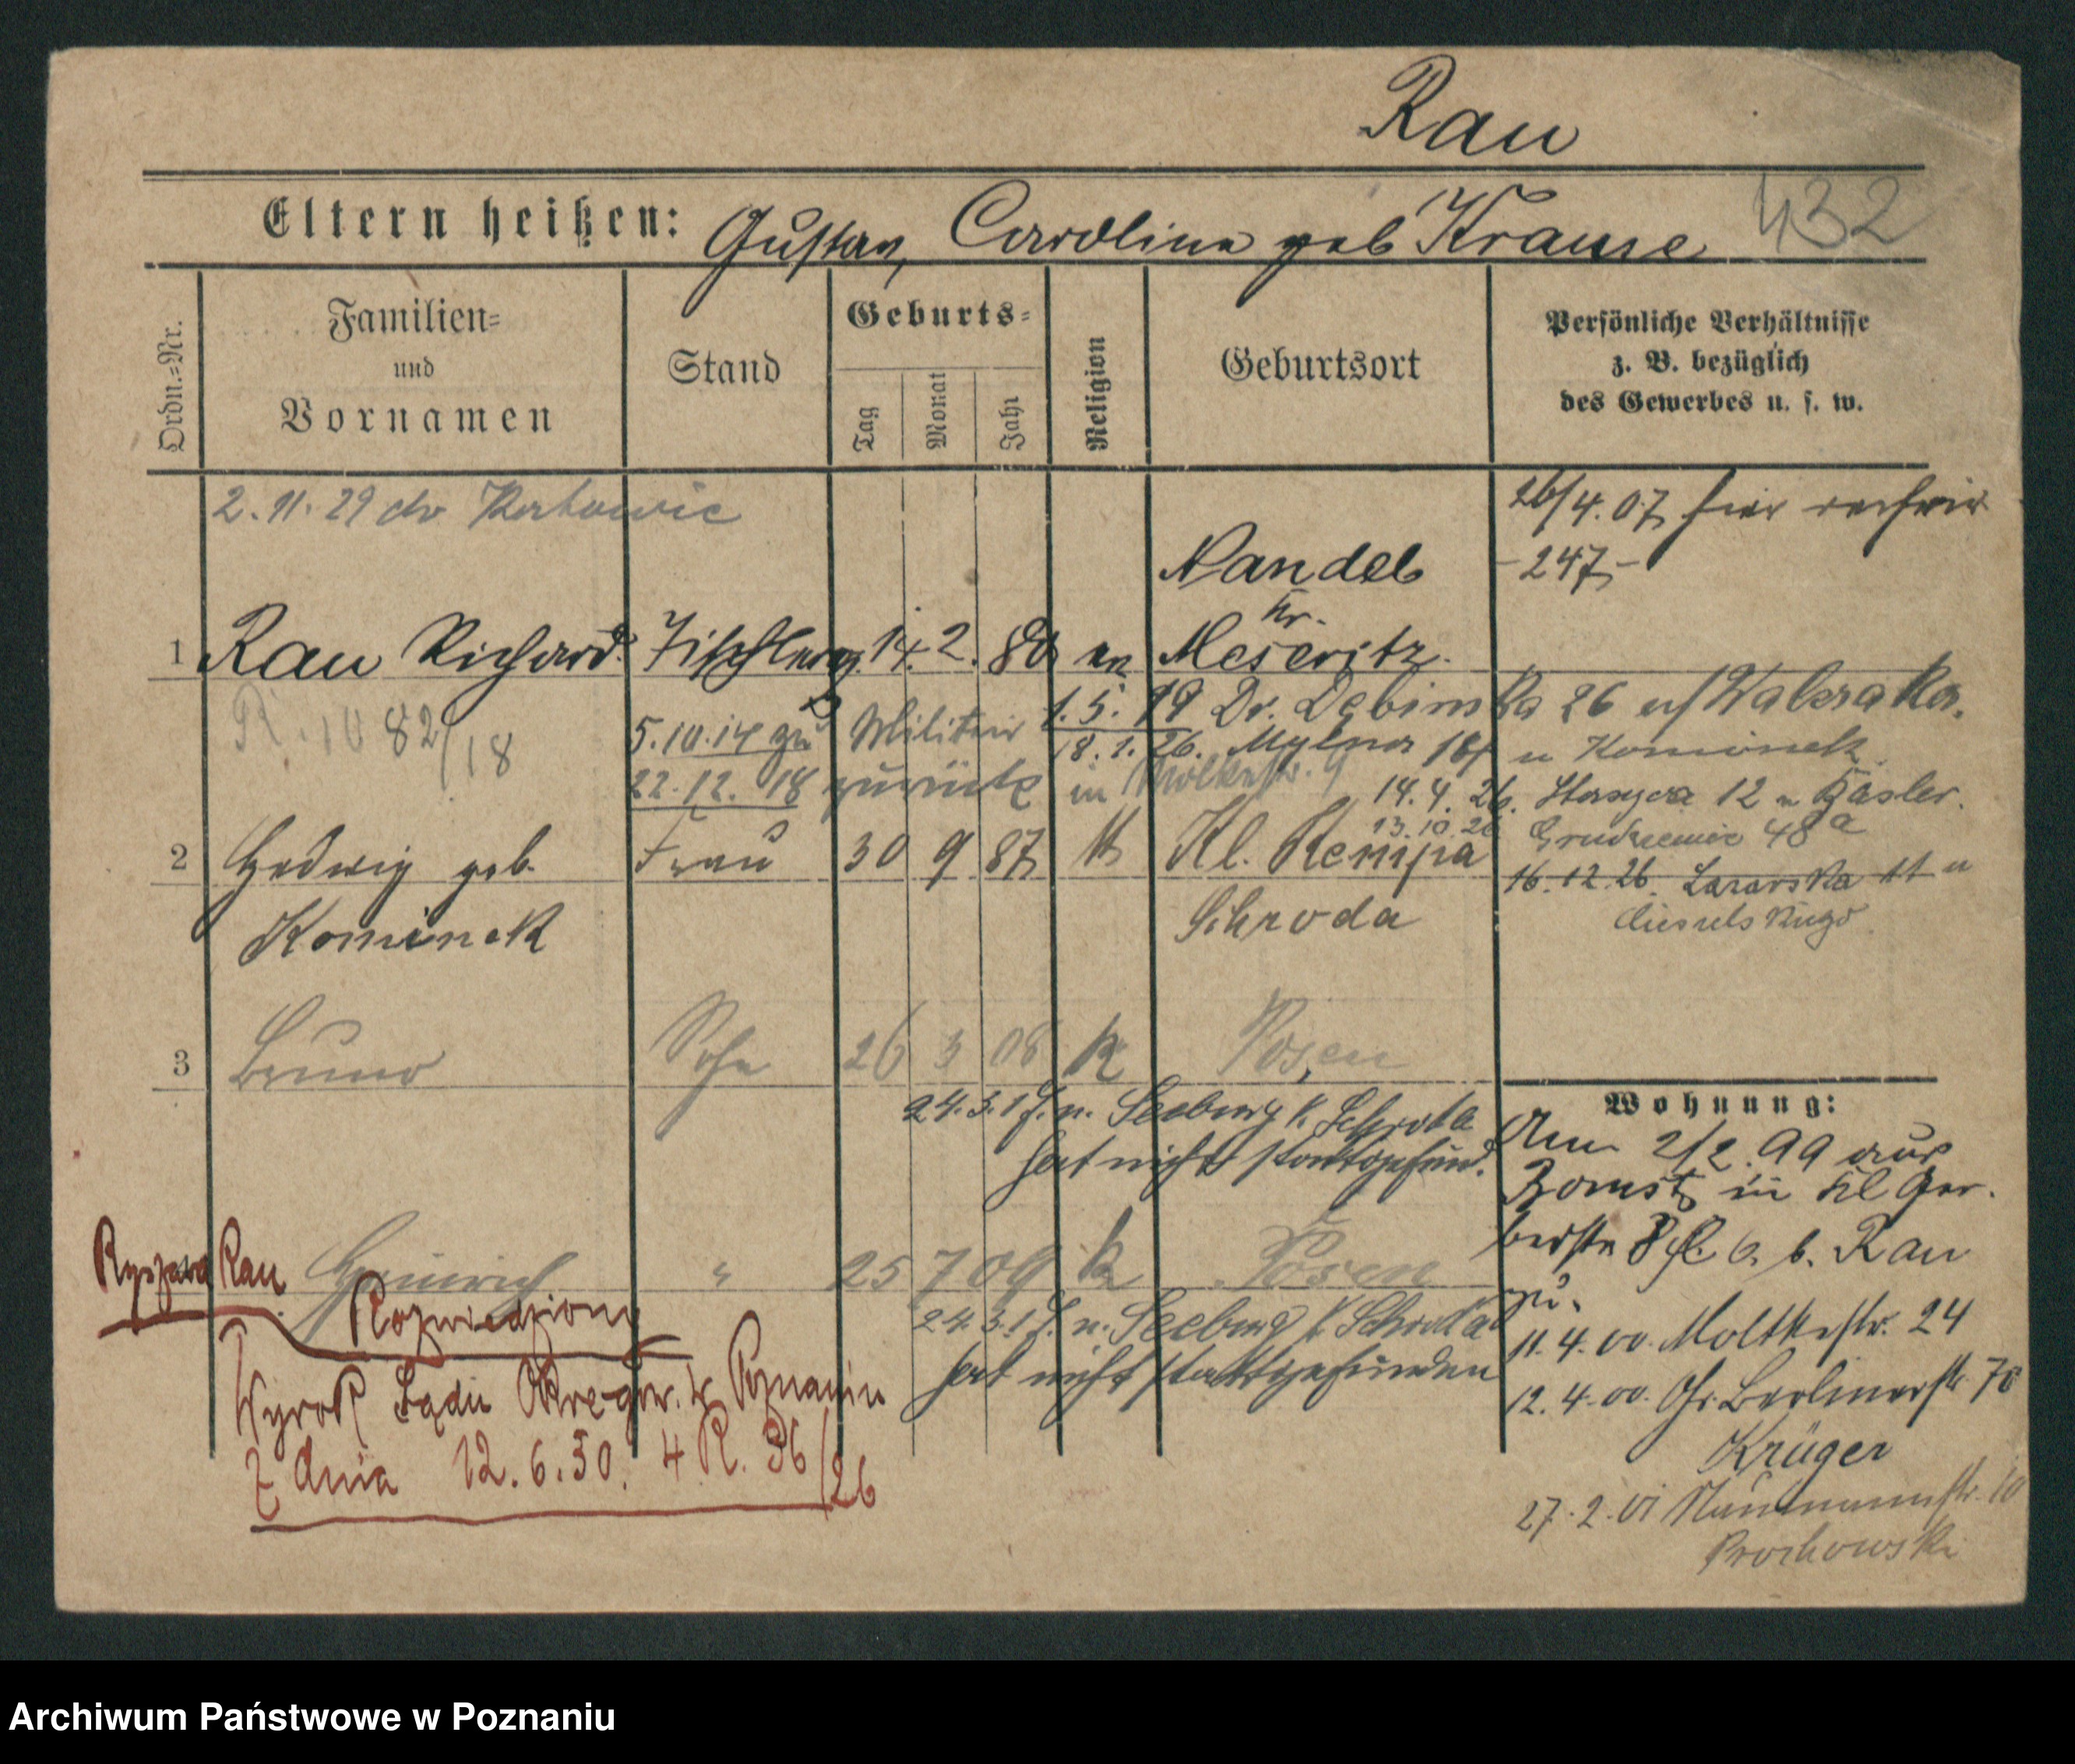 Rau
432
Eltern heißen: Gustav, Caroline geb Krause
Ordn.=Nr.
Familien=
und
Vornamen
Stand
Geburts=
Tag
Monat
Jahr
Religion
Geburtsort
Persönliche Verhältnisse
z. B. bezüglich
des Gewerbes u. s. w.
2. 11. 29 do Katowic
26/4. 07 hier
-247-
Nandel
Kr.
1 Rau Richard Tischlerg. 14. 2. 80 Meseritz
R. 1082/18
5.10.14 zu Militär 1. 5. 19 Dr. Dębinska 26
18. 1. 26. Mylna u Kominek
22.12. 18 zurück in Moltkestr. 9
14. 4. 26. 12 u Basler.
13. 10. 26 48a
2 Hedwig geb. Frau 30 9 87 k Kl. Kempa
Kominek Schroda
16. 12. 26. Lazarska 11 u
3 Bruno Sohn 26 3 08 k Posen
24. 3. 17. n. Seeburg K. Schroda
hat nicht stattgefund.
Heinrich " 25 7 09 k Posen
24. 3. 17. n. Seeburg K Schroda
hat nicht stattgefunden
Ryszard Rau
Rozwiedziony
Wyrok Sądu Okręgow. w Poznaniu
z dnia 12. 6. 30. 4 R. 36/26
Wohnung:
Am 2/2. 99 aus
Bomst in Kl Ger-
berstr 8 b. Rau
zu.
11. 4. 00. Moltkestr. 24
12. 4. 00. Gr. Berlinerstr 70
Krüger
27. 2. 01 Naumannstr. 10
Prochowski
Archiwum Państwowe w Poznaniu